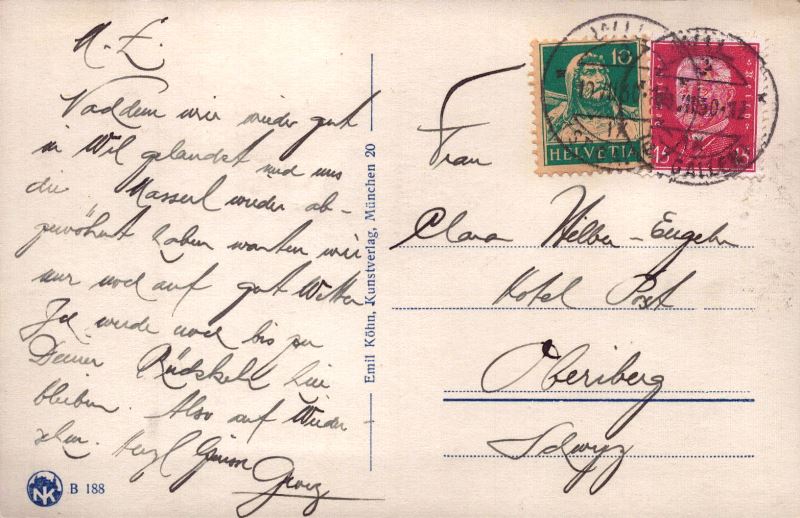 M. E.
Naddem wir wieder gut
in Wil gelandet sind uns
die Masserl wieder ab-
gewöhnt haben warten wir
nur noch auf gut Wetter
Ich werde noch bis zu
Deiner Rückkehr hier
bleiben. Also auf Wieder-
sehn. Herzl Grüsse
Georg
NK B 188
Emil Köhn, Kunstverlag, München 20
10
HELVETIA
15 15
WIL
ST. GALLEN
Frau
Clara Hilber-Engeln
Hotel Post
Oberiberg
Schwyz